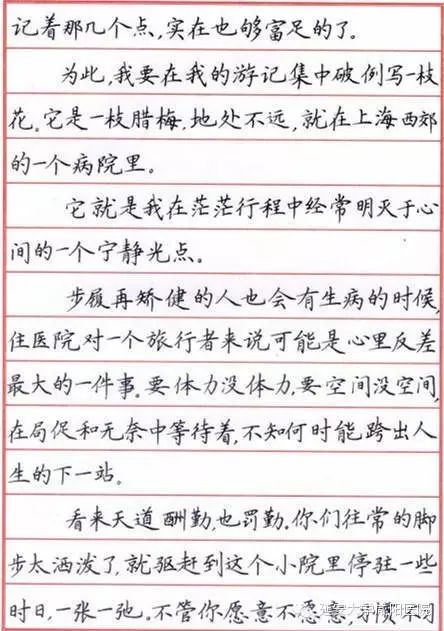 记着那几个点,实在也够富足的了。
为此,我要在我的游记集中破例写一枝
花。它是一枝腊梅,地处不远,就在上海西郊
的一个病院里。
它就是我在茫茫行程中经常明灭于心
间的一个宁静光点。
步履再矫健的人也会有生病的时候,
住医院对一个旅行者来说可能是心里反差
最大的一件事。要体力没体力,要空间没空间,
在局促和无奈中等待着,不知何时能跨出人
生的下一站。
看来天道酬勤,也罚勤。你们往常的脚
步太洒泼了,就驱赶到这个小院里停驻一些
时日,一张一弛。不管你愿意不愿意,习惯不习